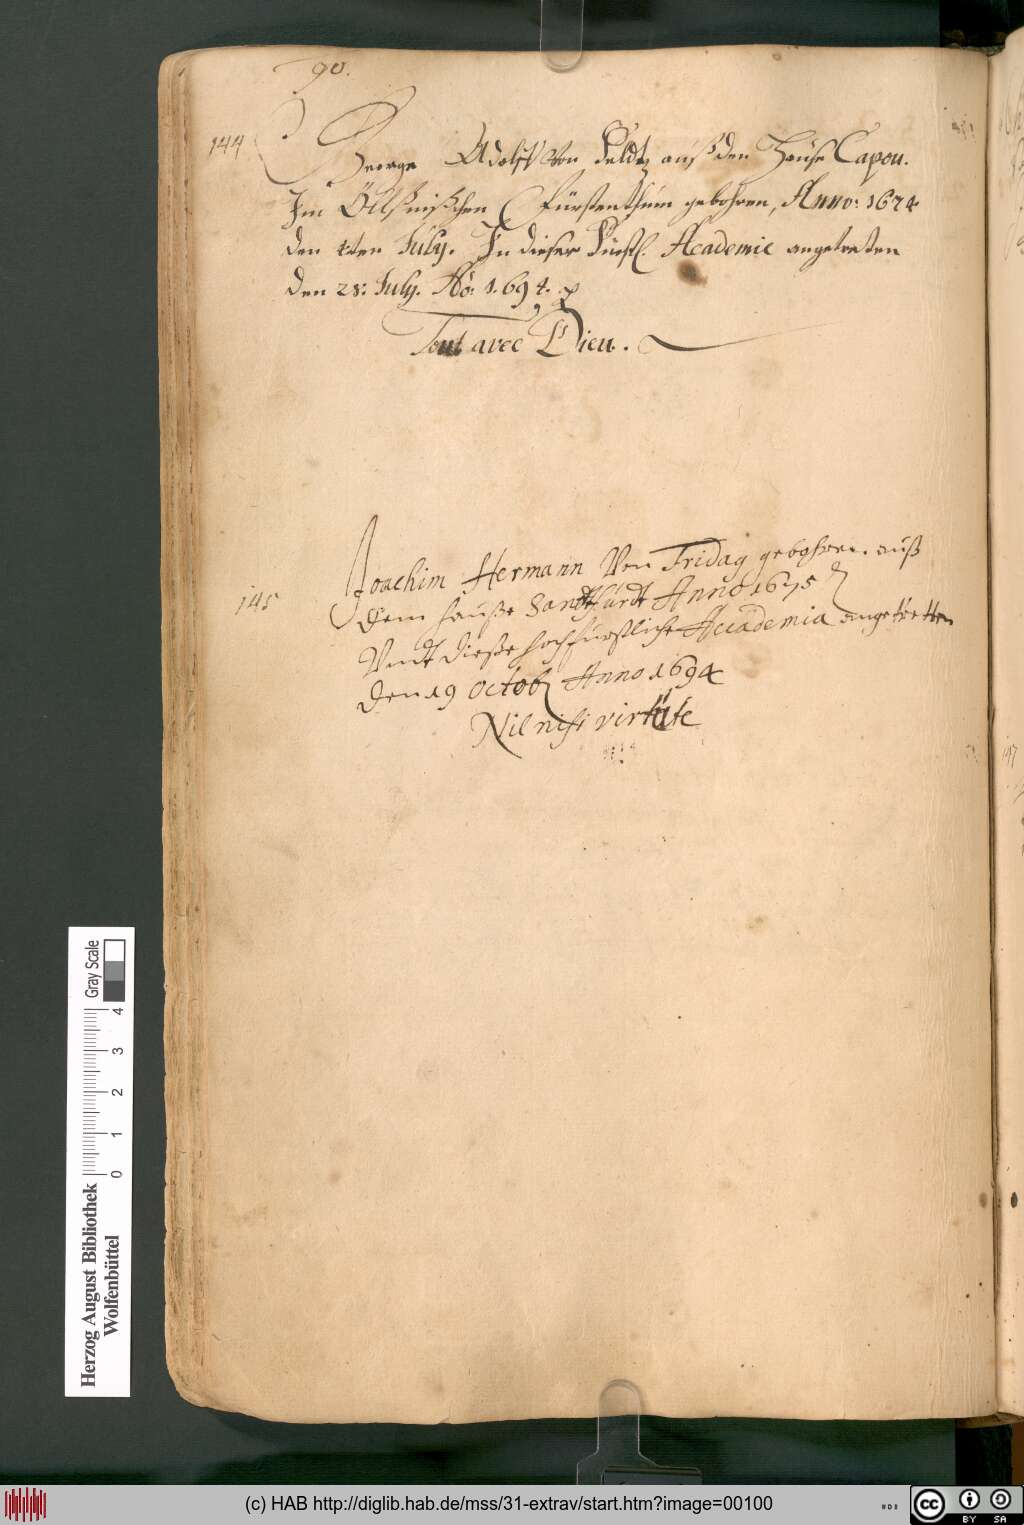 90.
144
George Adolff Von Seldtz auß den Hause Capon.
Im Ölßnißchen Fürstenthum gebohren, Anno: 1674
den ten July. In dieser Fürstl. Academie angetreten
den 28: July. Aõ: 1.694.
Tout avec Dieu.
145
Joachim Hermann Von Fridag gebohren auß
dem hauße Sandtfürdt Anno 1675
Vndt dieße hochfürstliche Accademia angetretten
den 19 octob Anno 1694
Nil nisi virtute
147
Gray Scale
0 1 2 3 4
Herzog August Bibliothek
Wolfenbüttel
(c) HAB http://diglib.hab.de/mss/31-extrav/start.htm?image=00100
cc BY SA